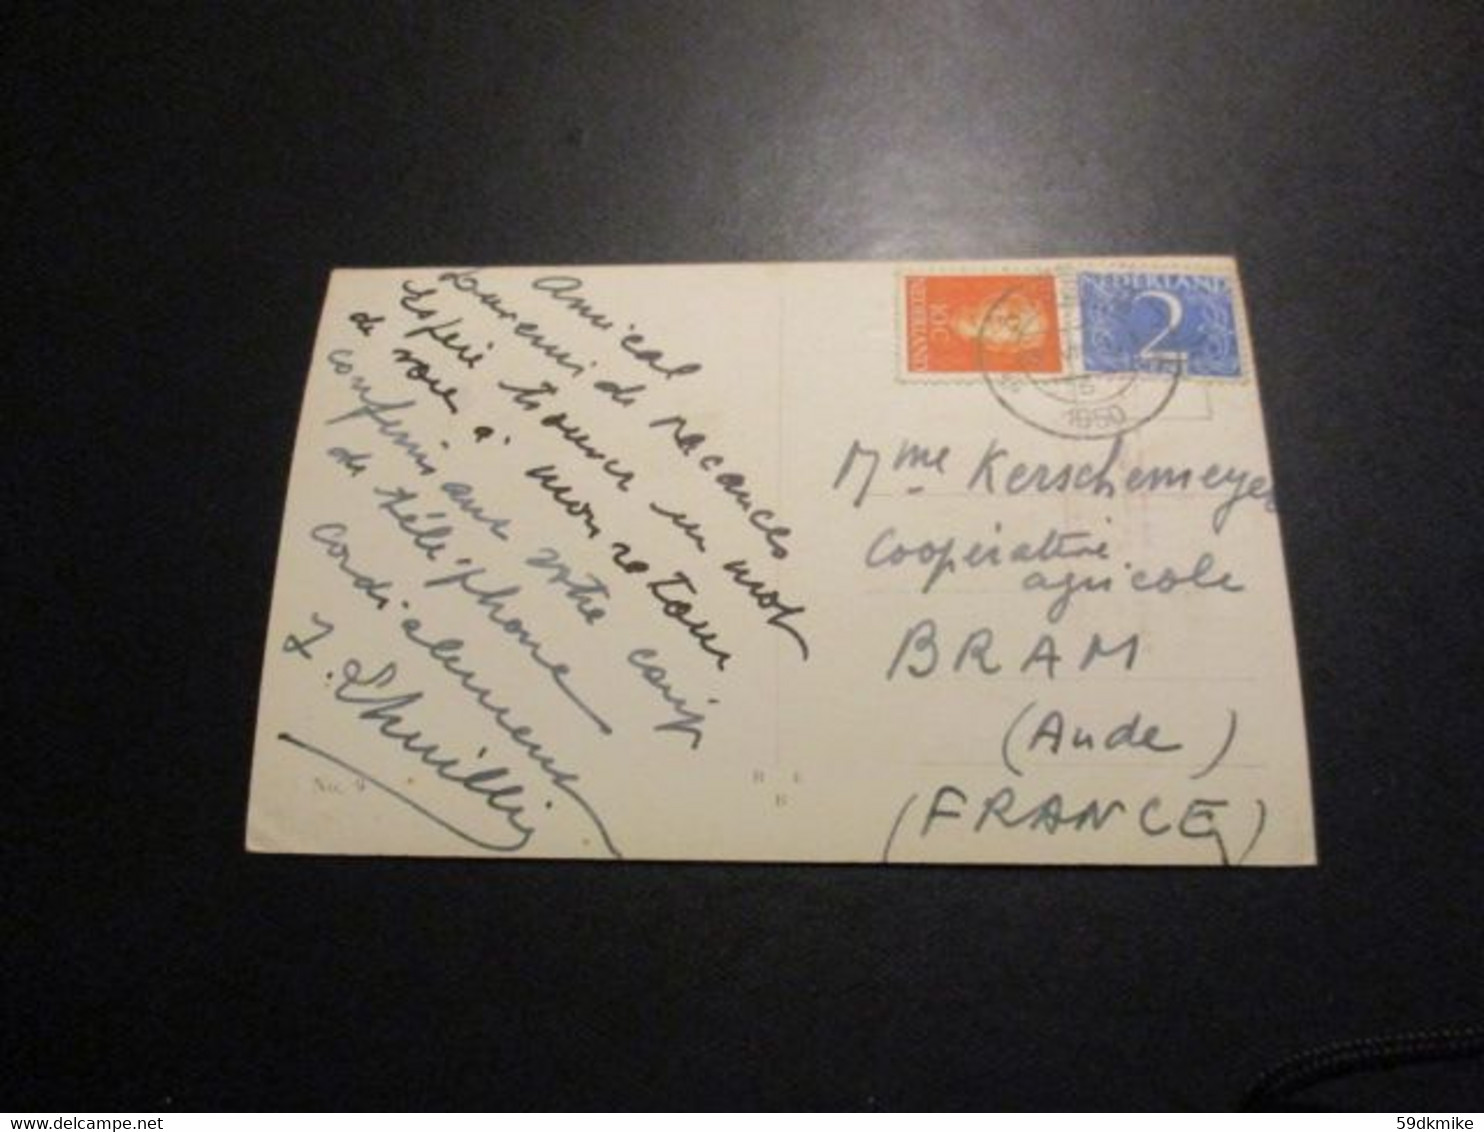 Amical
souvenir de vacances
Espère trouver un mot
de vous à mon retour
confirmant votre coup
de téléphone
cordialement
J. Lhuillier
No. 9
R E
B
NEDERLAND
10c
NEDERLAND
2
1950
Mme Kerschemeyer
Coopérative
agricole
BRAM
(Aude)
(FRANCE)
delcampe.net
59dkmike